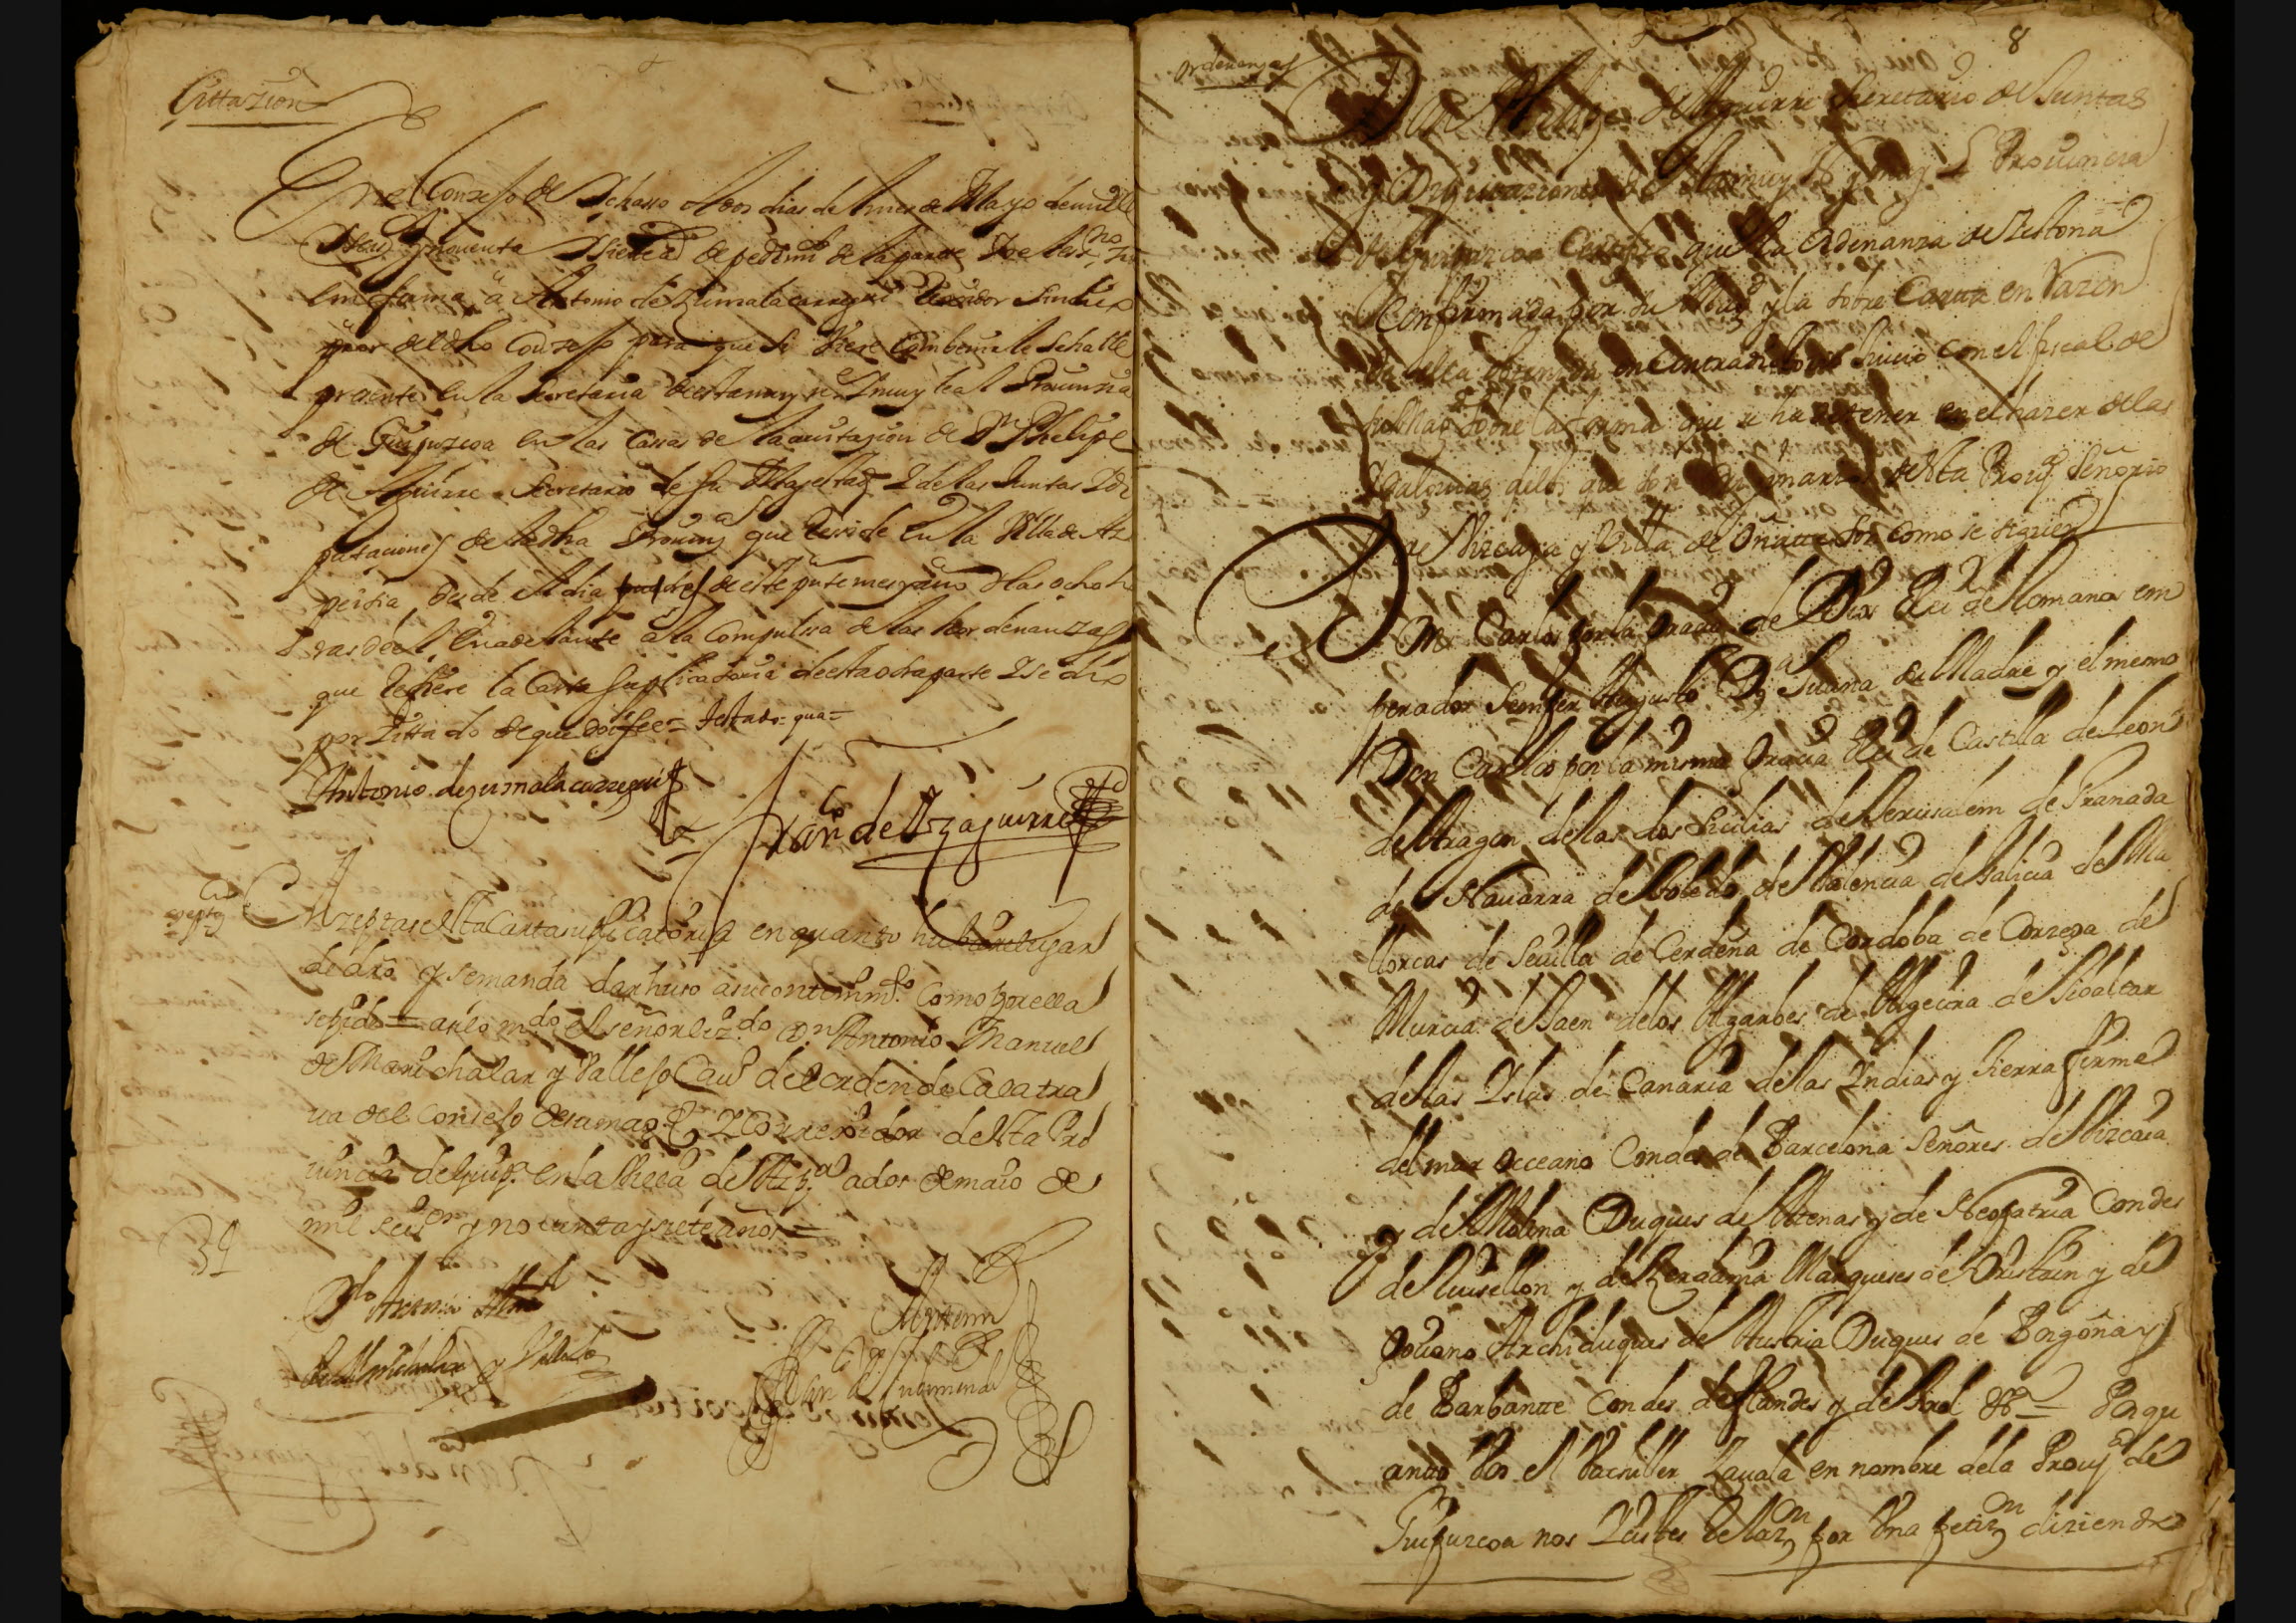 Cittazion
En el Conzejo de Ychasso a dos dias del mes de Mayo de mill
Seis.s y nouenta y siete a de pedim.to de la parte Yo el ess.no
en forma a Antonio de Zumalacarregui Rexidor Sindico
del dho Conzejo para que si viere combenirle se halle
presente en la Secretaria de esta muy n. y muy leal Prouincia
de Guipuzcoa en las Cassas de la auitazion de Dn Phelipe
de Aguirre Secretario de su Magestad y de las Juntas y Di
putaciones de la dha Prouinz.a que reside en la Villa de Az
peitia desde el dia tres de este pnte mes y año a las ocho h
oras de el en adelante a la Compulssa de las hordenanzas
que refiere la Carta Suplicatoria de esta otra parte y se dio
por Zittado de que doi fee = testado = qua =
Antonio de zumalacarregui
Fran.co de Yzaguirre
Azeptas
Azeptase esta Carta suplicatoria en quanto hubiere lugar
de dro y se manda dar huso a su contenim.to como por ella
se pide = asi lo m.do el señor liz.do D.n Antonio Manuel
de Marichalar y Vallejo Cau.o del orden de Calatra
ua del Consejo de su mag.d y Corregidor de esta Pro
uincia de Guip.a en la Villa de Azp.a a dos de maio de
mil seis.os y nouenta y siete años =
D.n Antonio Man.l
de Marichalar y Vallejo
Ante mi
8
ordenanzas
Don Phelipe de Aguirre Secretario de Juntas
y Diputaziones de esta muy N. y muy L. Prouincia
de Guipuzcoa Certifico que la Ordenanza de Zestona
Confirmada por su Mag.d y la sobre Carta en Razon
de ella obtenida en Contradictorio Juicio con el fiscal de
su Mag.d sobre la forma que se ha de tener en el hazer de las
Hidalguias de los que son originarios de esta Prou.a Señorio
de Vizcaya y Villa de Oñatte son como se siguen
Dn Carlos por la Gracia de Dios Rei de Romanos em
perador Semper Augusto D.a Juana su Madre y el mesmo
Don Carlos por la misma Gracia Rei de Castilla de Leon
de Aragon de las dos Sicilias de Jerusalem de Granada
de Nauarra de Toledo de Valencia de Galicia de Ma
llorcas de Seuilla de Cerdeña de Cordoba de Corzega de
Murcia de Jaen de los Algarbes de Algecira de Gibaltar
de las Yslas de Canaria de las Yndias y Tierra firme
del mar occeano Condes de Barcelona Señores de Vizcaia
y de Molina Duques de Atenas y de Neopatria Condes
de Ruisellon y de Zerdania Marqueses de Oristan y de
Goziano Archiduques de Austria Duques de Borgoña y
de Barbante Condes de Flandes y de Tirol &.a = Porqu
anto Vos el bachiller Zauala en nombre de la Prou.a de
Guipuzcoa nos Hizistes Relaz.n por Vna petiz.n diziendo